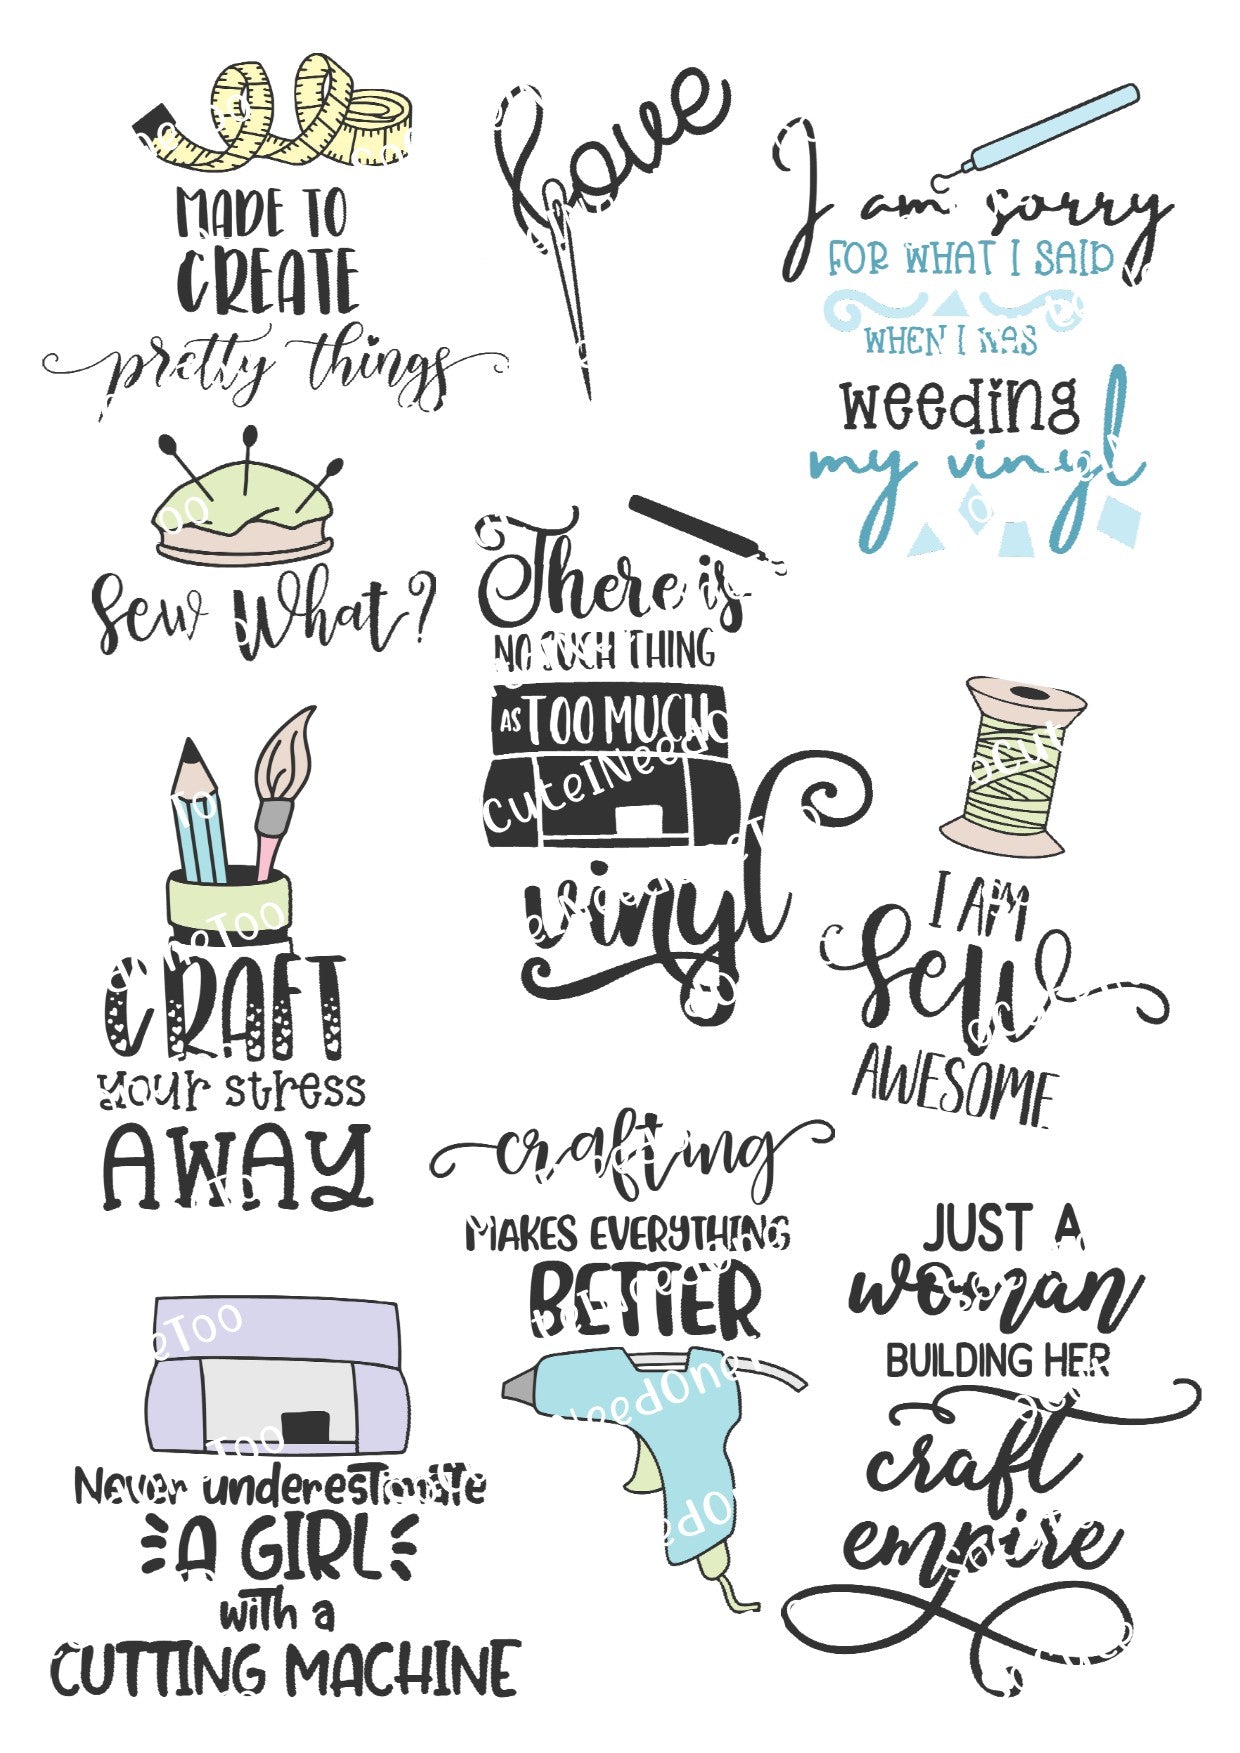 MADE TO
CREATE
pretty things
love
I am sorry
FOR WHAT I SAID
WHEN I WAS
weeding
my vinyl
Sew What?
There is
NO SUCH THING
AS TOO MUCH
vinyl
CuteINeedOneToo
I AM
Sew
AWESOME
CRAFT
your stress
AWAY
crafting
MAKES EVERYTHING
BETTER
JUST A
woman
BUILDING HER
craft
empire
Never underestimate
A GIRL
with a
CUTTING MACHINE